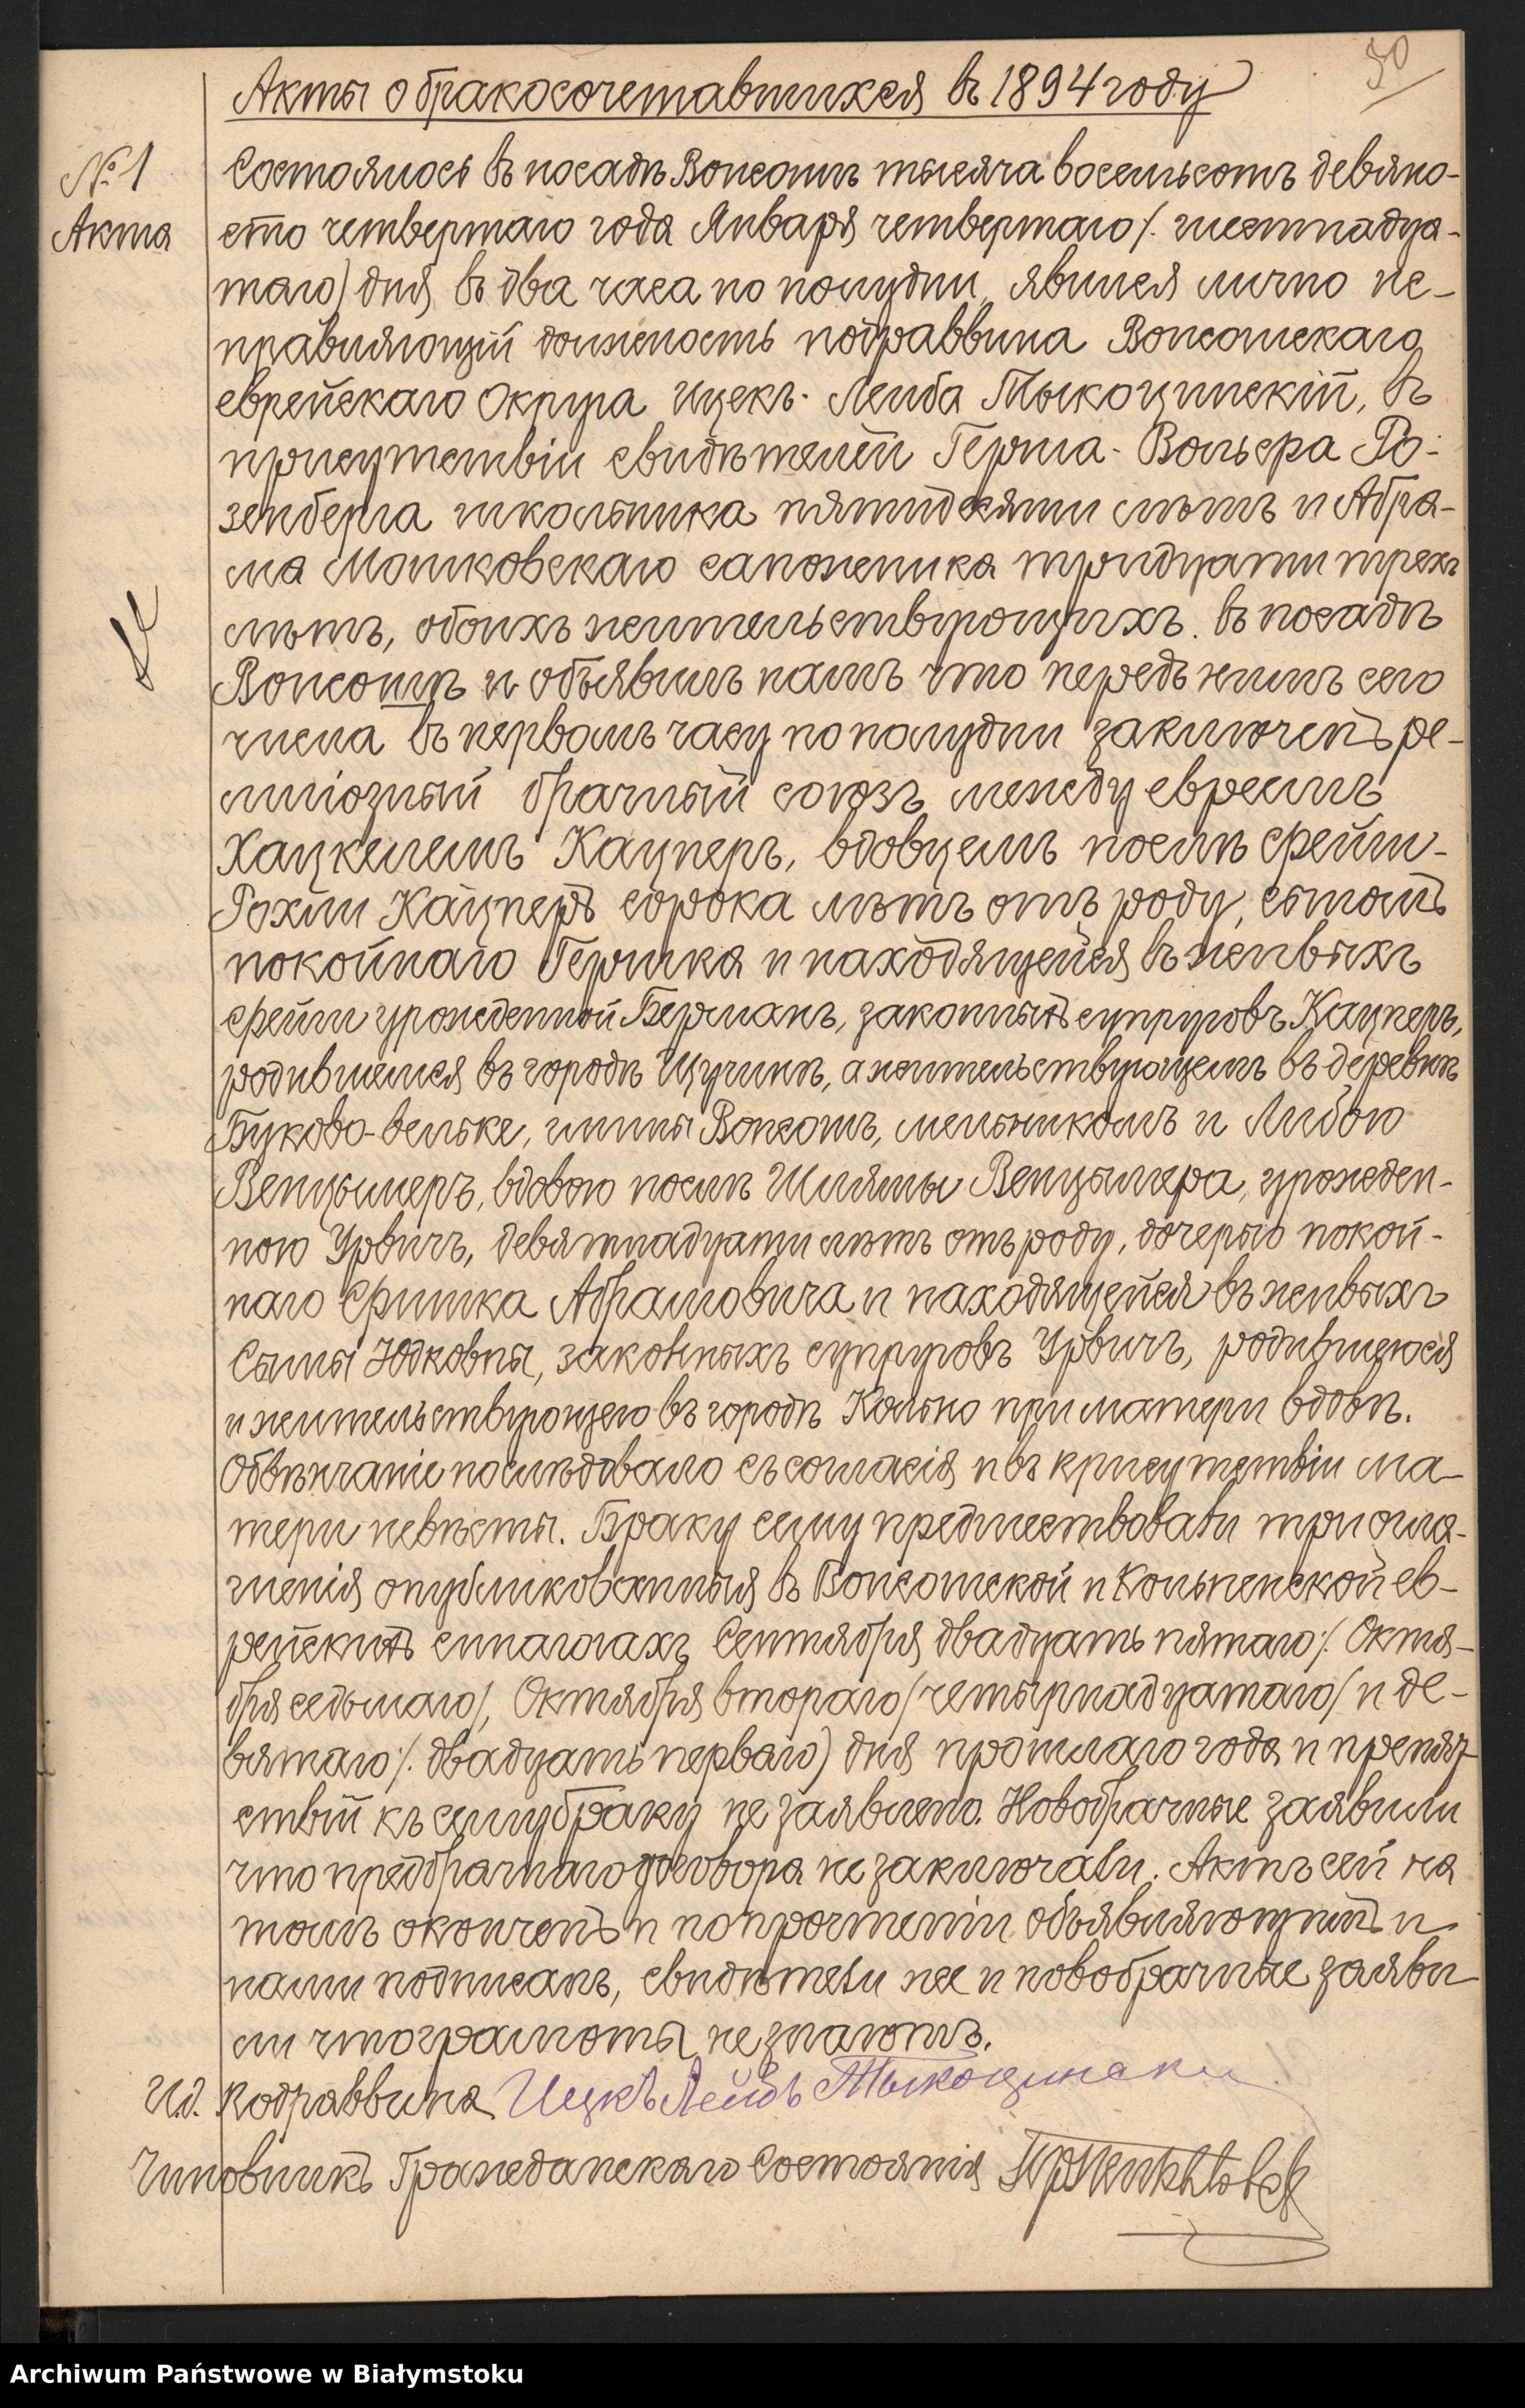 30
Акты о бракосочетавшихся въ 1894 году
№ 1
Акта
Состоялось въ посадѣ Вонсошъ тысяча восемьсотъ девяно-
сто четвертаго года Января четвертаго /. шестнадца-
таго) дня въ два часа по полудни, явился лично ис-
правляющій должность подраввина Вонсошскаго
еврейскаго Округа Ицекъ-Лейба Тыкоцинскій, въ
присутствіи свидѣтелей Герша-Вольфа Ро-
зенберга школьника пятидесяти лѣтъ и Абра-
ма Мошковскаго сапожника тридцати трехъ
лѣтъ, обоихъ жительствующихъ въ посадѣ
Вонсошѣ и объявилъ намъ что передъ нимъ сего
числа въ первомъ часу по полудни заключенъ ре-
лигіозный брачный союзъ между евреемъ
Хацкелемъ Кацперъ, вдовцемъ послѣ Фейги-
Рохли Кацперъ сорока лѣтъ отъ роду, сыномъ
покойнаго Гершка и находящейся въ живыхъ
Фейги урожденной Берманъ, законныхъ супруговъ Кацперъ,
родившемся въ городѣ Щучинѣ, а жительствующемъ въ деревнѣ
Буково-вельке, гмины Вонсошъ, мельникомъ и Либою
Венцымеръ, вдовою послѣ Шлямы Венцымера, урожден-
ною Урвичъ, девятнадцати лѣтъ отъ роду, дочерью покой-
наго Фишка Абрамовича и находящейся въ живыхъ
Сымы Юдковны, законныхъ супруговъ Урвичъ, родившеюся
и жительствующею въ городѣ Кольно при матери вдовѣ.
Обвѣнчаніе послѣдовало съ согласія и въ присутствіи ма-
тери невѣсты. Браку сему предшествовали три огла-
шенія опубликованныя въ Вонсошской и Кольненской ев-
рейскихъ синагогахъ Сентября двадцать пятаго /. Октя-
бря седьмаго/, Октября втораго /четырнадцатаго/ и де-
вятаго /. двадцать перваго) дня прошлаго года и препят-
ствій къ сему браку не заявлено. Новобрачные заявили
что предбрачнаго договора не заключали. Актъ сей на
томъ оконченъ и по прочтеніи объявляющимъ и
нами подписанъ, свидѣтели же и новобрачные заяви-
ли что грамоты не знаютъ.
И.д. Подраввина Ицкъ Лейбъ Тыкоцински
Чиновникъ Гражданскаго Состоянія
Archiwum Państwowe w Białymstoku